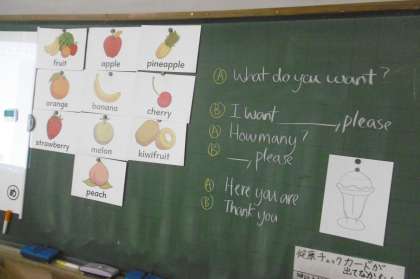 fruit
apple
pineapple
orange
banana
cherry
strawberry
melon
kiwifruit
peach
Ⓐ What do you want?
Ⓑ I want ______, please
Ⓐ How many?
Ⓑ ___, please
Ⓐ Here you are
Ⓑ Thank you
健康チェックカードが